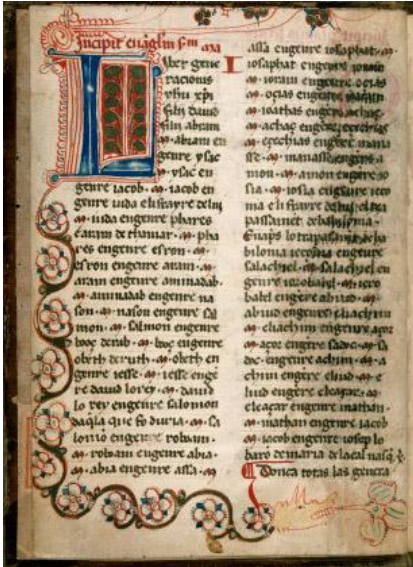 Incipit
Liber gene
racionis
yhu xpi
filii dauid
filii abram
abram en
genre ysac
ysac en
genre iacob · iacob en
genre iuda eli frayre de luy
iuda engenre phares
e aram de thamar · pha
res engenre esrom ·
esrom engenre aram ·
aram engenre aminadab
aminadab engenre na
son · nason engenre sal
mon · salmon engenre
booz de rab · booz engenre
obeth de ruth · obeth en
genre iesse · iesse enge
re dauid lo rey · dauid
lo rey engenre salomon
daqla que fo duria · sa
lomo engenre roboam ·
roboam engenre abia ·
abia engenre assa ·
assa engenre iosaphat ·
iosaphat engenre ioram
ioram engenre ocias
ocias engenre
ioathas engenre achaz
achaz engenre ezechias
ezechias engenre mana
sse · manasses engenre a
mon · amon engenre io
sia · iosia engenre ieco
nia eli frayre de luy el tra
passament de babilonia ·
Enaps lo trapassament de ba
bilonia ieconia engenre
salachiel · salachiel en
genre zorobabel · zoro
babel engenre abiud ·
abiud engenre eliachim
eliachim engenre azor
azor engenre sadoc · sa
doc engenre achim · a
chim engenre eliud · e
liud engenre eleazar ·
eleazar engenre mathan ·
mathan engenre iacob
iacob engenre iosep lo
baro de maria de la cal nasq
Donca totas las genera